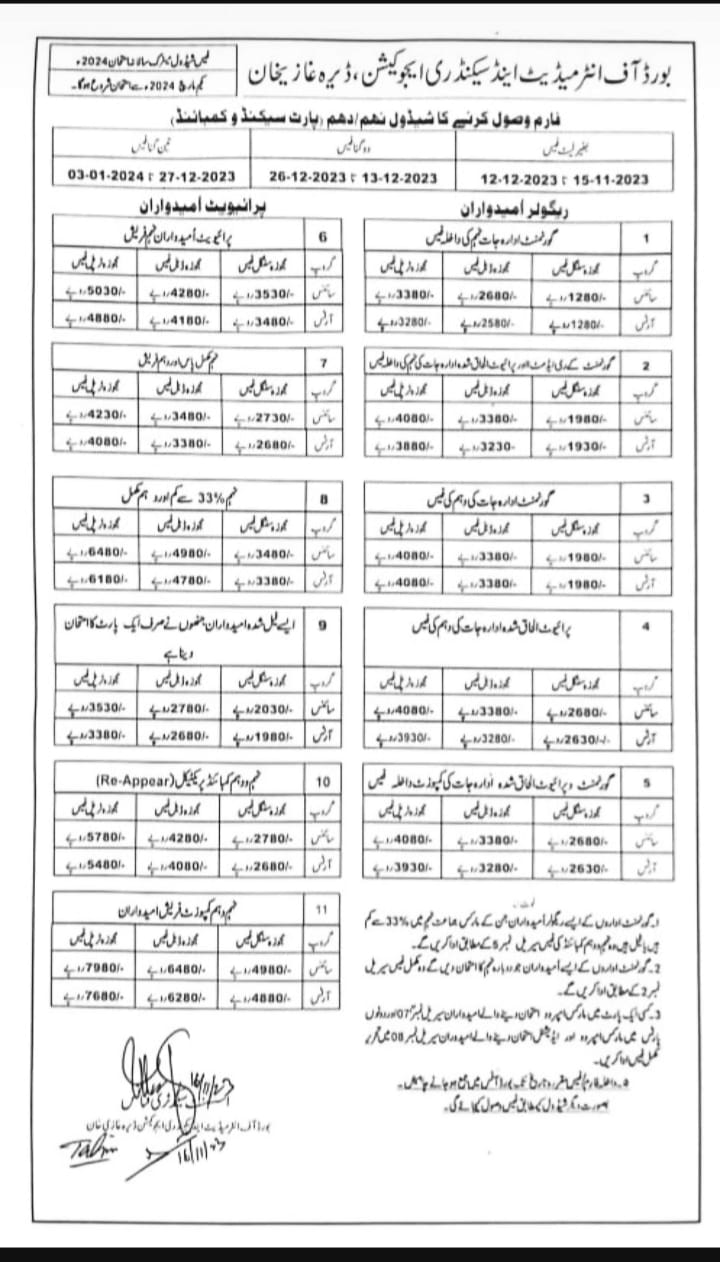 بورڈ آف انٹرمیڈیٹ اینڈ سیکنڈری ایجوکیشن، ڈیرہ غازیخان
فیس شیڈول میٹرک سالانہ امتحان 2024ء
یکم مارچ 2024ء سے امتحان شروع ہوگا۔
فارم وصول کرنے کا شیڈول نہم/دہم (پارٹ سیکنڈ و کمبائنڈ)
بغیر لیٹ فیس دوگنا فیس تین گنا فیس
15-11-2023 تا 12-12-2023 13-12-2023 تا 26-12-2023 27-12-2023 تا 03-01-2024
ریگولر اُمیدواران
1 گورنمنٹ ادارہ جات نہم کی داخلہ فیس
گروپ مجوزہ سنگل فیس مجوزہ ڈبل فیس مجوزہ ٹرپل فیس
سائنس 1280/-روپے 2680/-روپے 3380/-روپے
آرٹس 1280/-روپے 2580/-روپے 3280/-روپے
2 گورنمنٹ کے ری ایڈمٹ اور پرائیوٹ الحاق شدہ ادارہ جات کی نہم کی داخلہ فیس
گروپ مجوزہ سنگل فیس مجوزہ ڈبل فیس مجوزہ ٹرپل فیس
سائنس 1980/-روپے 3380/-روپے 4080/-روپے
آرٹس 1930/-روپے 3230-روپے 3880/-روپے
3 گورنمنٹ ادارہ جات کی دہم کی فیس
گروپ مجوزہ سنگل فیس مجوزہ ڈبل فیس مجوزہ ٹرپل فیس
سائنس 1980/-روپے 3380/-روپے 4080/-روپے
آرٹس 1980/-روپے 3380/-روپے 4080/-روپے
4 پرائیوٹ الحاق شدہ ادارہ جات کی دہم کی فیس
گروپ مجوزہ سنگل فیس مجوزہ ڈبل فیس مجوزہ ٹرپل فیس
سائنس 2680/-روپے 3380/-روپے 4080/-روپے
آرٹس 2630/-/-روپے 3280/-روپے 3930/-روپے
5 گورنمنٹ و پرائیوٹ الحاق شدہ ادارہ جات کی کمپوزٹ داخلہ فیس
گروپ مجوزہ سنگل فیس مجوزہ ڈبل فیس مجوزہ ٹرپل فیس
سائنس 2680/-روپے 3380/-روپے 4080/-روپے
آرٹس 2630/-روپے 3280/-روپے 3930/-روپے
نوٹ:-
1۔ گورنمنٹ اداروں کے ایسے ریگولر اُمیدواران جن کے مارکس جماعت نہم میں 33% سے کم
ہیں یا فیل ہیں وہ نہم و دہم کمبائنڈ کی فیس سیریل نمبر 5 کے مطابق ادا کریں گے۔
2۔ گورنمنٹ اداروں کے ایسے اُمیدواران جو دوبارہ نہم کا امتحان دیں گے وہ مکمل فیس سیریل
نمبر 2 کے مطابق ادا کریں گے۔
3۔ کسی ایک پارٹ میں مارکس امپروو امتحان دینے والے امیدواران سیریل نمبر 07 اور دونوں
پارٹس میں مارکس امپروو اور ایڈیشنل امتحان دینے والے امیدواران سیریل نمبر 08 میں تحریر
مکمل فیس ادا کریں۔
۵۔ داخلہ فارم/فیس مقررہ تاریخ تک بورڈ آفس میں جمع ہو جانے چاہئیں۔
بصورت دیگر شیڈول کے مطابق فیس وصول کی جائے گی۔
پرائیویٹ اُمیدواران
6 پرائیویٹ اُمیدواران نہم فریش
گروپ مجوزہ سنگل فیس مجوزہ ڈبل فیس مجوزہ ٹرپل فیس
سائنس 3530/-روپے 4280/-روپے 5030/-روپے
آرٹس 3480/-روپے 4180/-روپے 4880/-روپے
7 نہم مکمل پاس اور دہم فریش
گروپ مجوزہ سنگل فیس مجوزہ ڈبل فیس مجوزہ ٹرپل فیس
سائنس 2730/-روپے 3480/-روپے 4230/-روپے
آرٹس 2680/-روپے 3380/-روپے 4080/-روپے
8 نہم 33% سے کم اور دہم مکمل
گروپ مجوزہ سنگل فیس مجوزہ ڈبل فیس مجوزہ ٹرپل فیس
سائنس 3480/-روپے 4980/-روپے 6480/-روپے
آرٹس 3380/-روپے 4780/-روپے 6180/-روپے
9 ایسے فیل شدہ امیدواران جنھوں نے صرف ایک پارٹ کا امتحان
دینا ہے
گروپ مجوزہ سنگل فیس مجوزہ ڈبل فیس مجوزہ ٹرپل فیس
سائنس 2030/-روپے 2780/-روپے 3530/-روپے
آرٹس 1980/-روپے 2680/-روپے 3380/-روپے
10 نہم و دہم کمبائنڈ پریکٹیکل (Re-Appear)
گروپ مجوزہ سنگل فیس مجوزہ ڈبل فیس مجوزہ ٹرپل فیس
سائنس 2780/-روپے 4280/-روپے 5780/-روپے
آرٹس 2680/-روپے 4080/-روپے 5480/-روپے
11 نہم و دہم کمپوزٹ فریش امیدواران
گروپ مجوزہ سنگل فیس مجوزہ ڈبل فیس مجوزہ ٹرپل فیس
سائنس 4980/-روپے 6480/-روپے 7980/-روپے
آرٹس 4880/-روپے 6280/-روپے 7680/-روپے
16/11/23
بورڈ آف انٹرمیڈیٹ اینڈ سیکنڈری ایجوکیشن ڈیرہ غازی خان
16/11/23